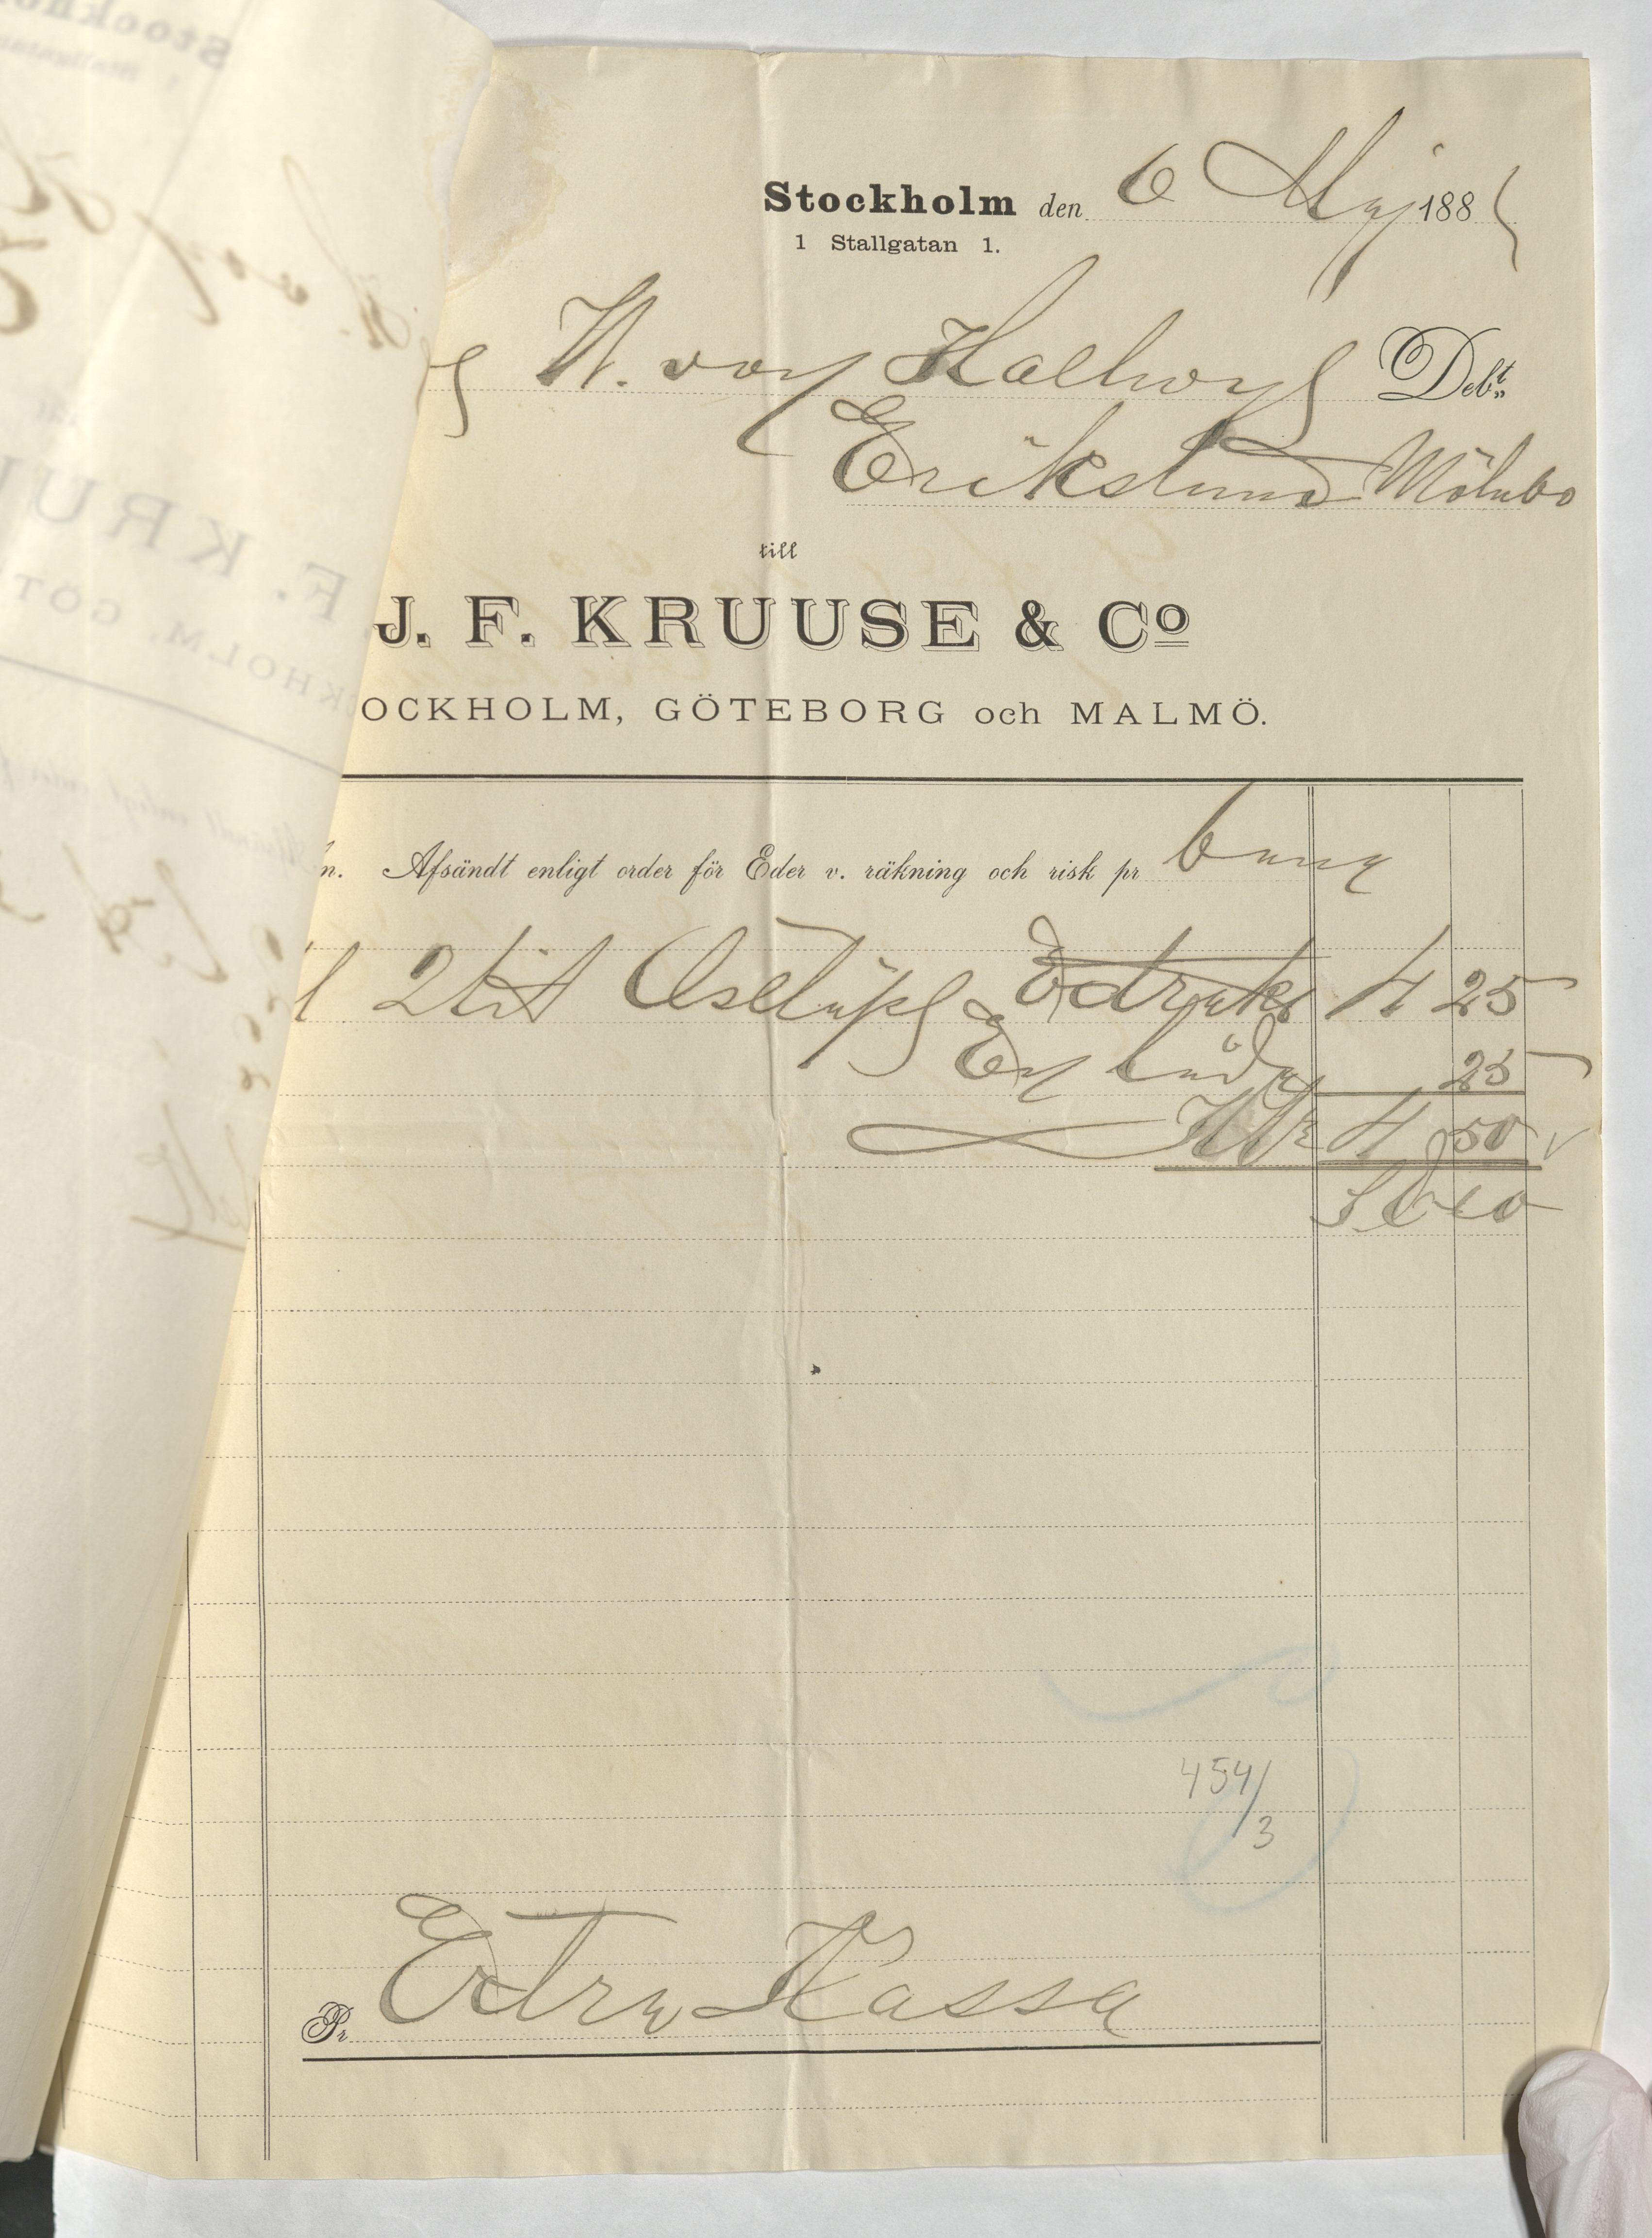 Stockholm den 6 Maj 188
1 Stallgatan 1.
W. von Hallwyl Debt.
Erikslund Mölnbo
till
J. F. KRUUSE & Co
OCKHOLM, GÖTEBORG och MALMÖ.
n. Afsändt enligt order för Eder v. räkning och risk pr bana
2 Ostlöps Extrakt 4 25
En låda 25
Kr 4 50
454/3
Pr Extra Kassa